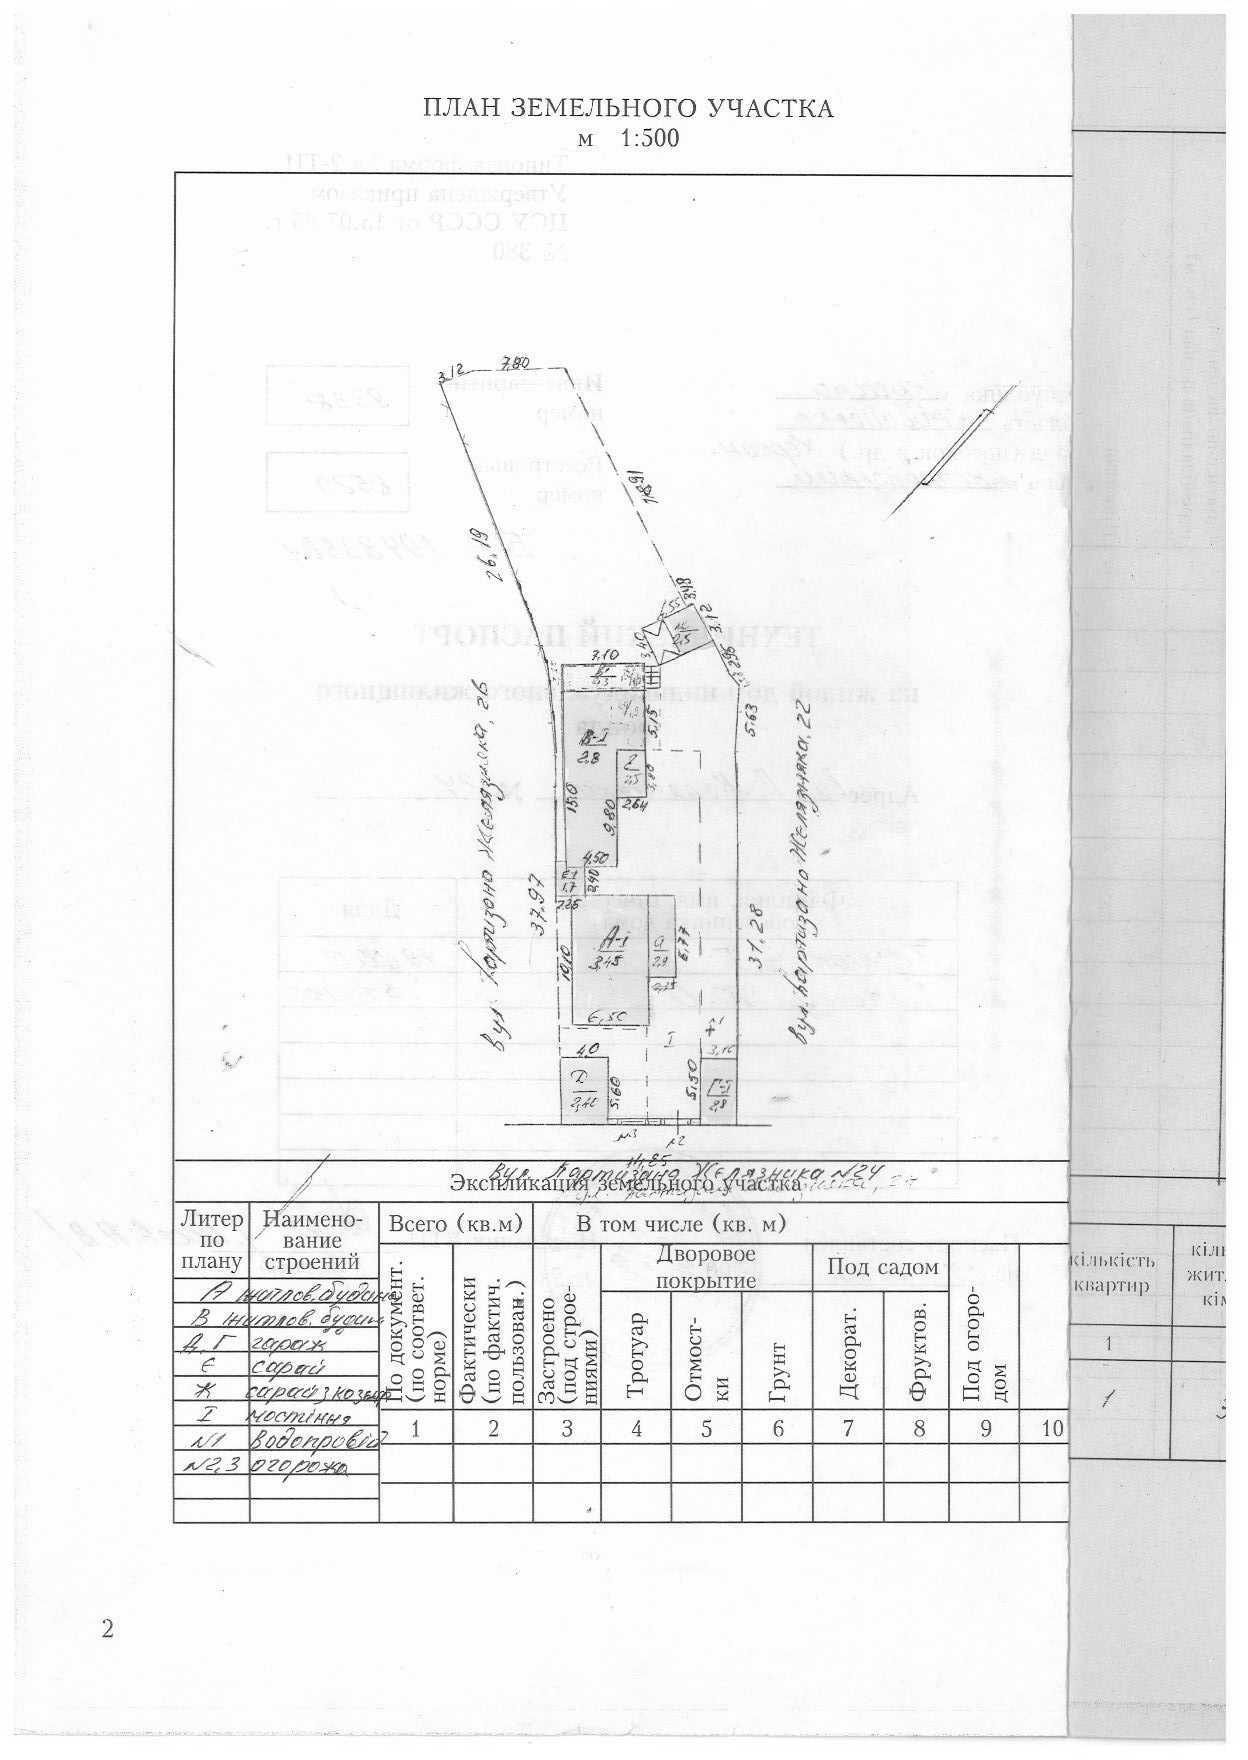 ПЛАН ЗЕМЕЛЬНОГО УЧАСТКА
м 1:500
3,12
7,80
26,19
3,48
3,12
2,96
3,40
К
2,5
7,10
5,63
5,15
В-I
2,8
2,5
3,80
2,64
15,0
9,80
4,50
Є1
1,7
2,40
1,25
37,97
А-I
3,45
а
2,9
6,77
10,10
2,25
31,28
6,50
I
3,10
4,0
Д
2,40
5,60
5,50
Г-I
2,8
№3
№2
вул. Партизана Желязняка, 26
вул. Партизана Желязняка, 22
14,85
вул. Партизана Желязняка №24
Экспликация земельного участка
Литер по плану
Наимено-вание строений
Всего (кв.м)
В том числе (кв. м)
По документ. (по соответ. норме)
Фактически (по фактич. пользован.)
Застроено (под строе-ниями)
Дворовое покрытие
Под садом
Тротуар
Отмост-ки
Грунт
Декорат.
Фруктов.
Под огоро-дом
1 2 3 4 5 6 7 8 9 10
А житлов. будин
В житлов. будин
Д, Г гараж
Є сарай
К сарай з козирк
I мостіння
№1 водопровід
№2,3 огорожа
кількість
квартир
кіль
жит
кім
1
1
3
2